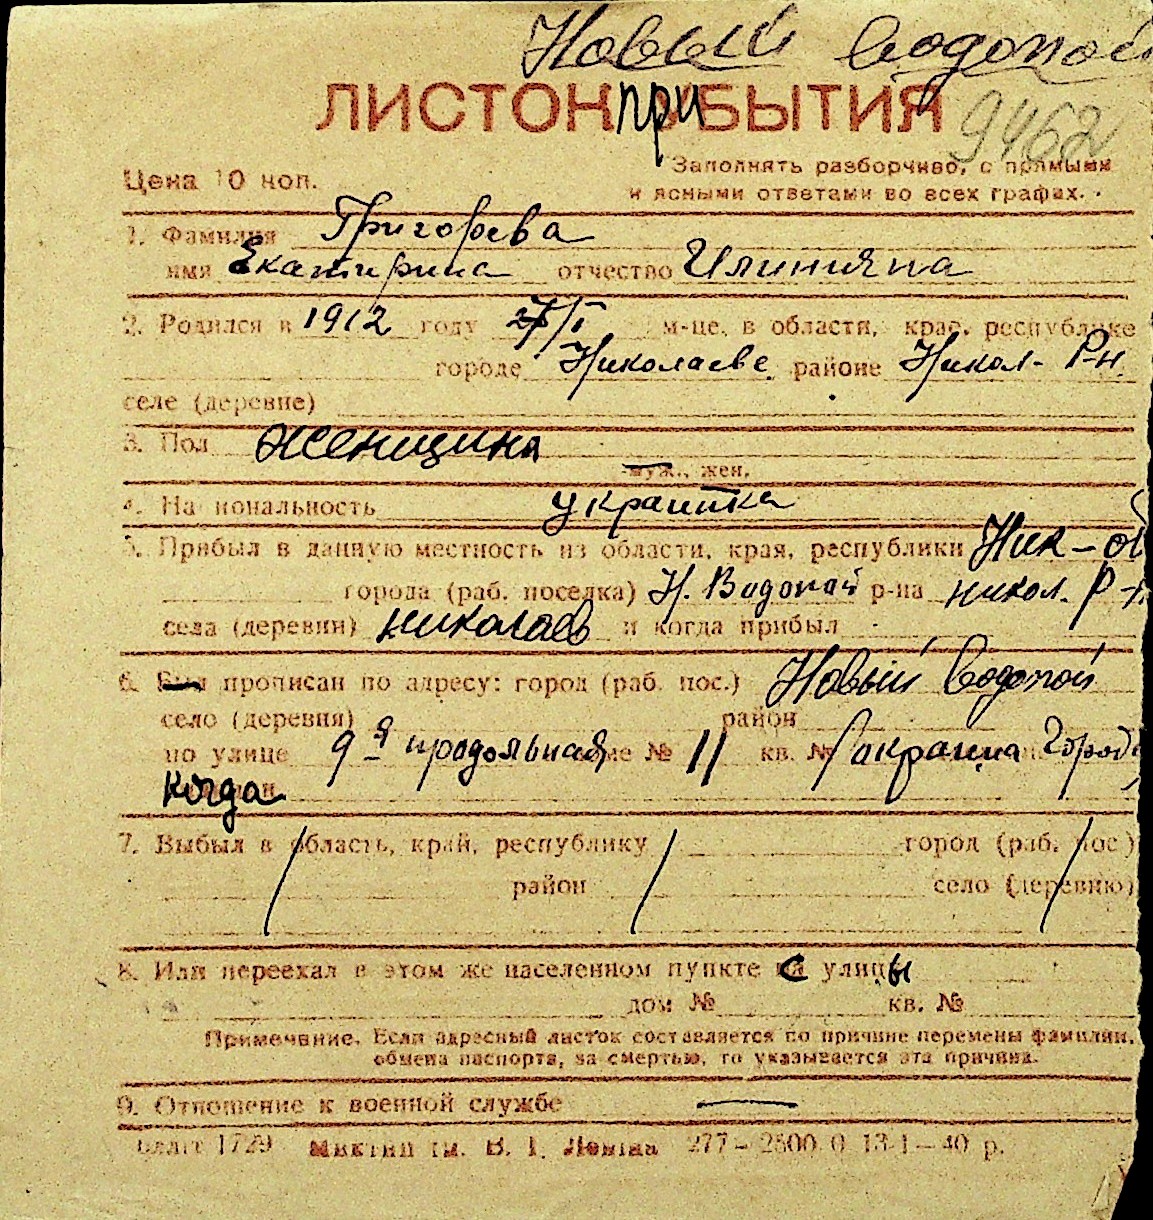 Новый водопой
ЛИСТОК ПРИБЫТИЯ
9462
Цена 10 коп.
Заполнять разборчиво, с прямыми
и ясными ответами во всех графах.
1. Фамилия Григорьева
имя Екатирина отчество
2. Родился в 1912 году 27/I м-це, в области, крае, республике
городе Николаеве районе Никол- Р-н.
селе (деревне)
3. Пол женщина
муж., жен.
4. Национальность украинка
5. Прибыл в данную местность из области, края, республики Ник-об
города (раб. поселка) Н. Водопой р-на Никол. Р-н
села (деревни) николаев и когда прибыл
6. Был прописан по адресу: город (раб. пос.) Новый водопой
село (деревня) район
по улице 9-я продольная доме № 11 кв. № окраина города
когда
7. Выбыл в область, край, республику город (раб. пос.)
район село (деревню)
8. Или переехал в этом же населенном пункте с улицы
дом № кв. №
Примечание. Если адресный листок составляется по причине перемены фамилии,
обмена паспорта, за смертью, то указывается эта причина.
9. Отношение к военной службе —
1729 им. В. І. Леніна 277—2500.0 13-1—40 р.